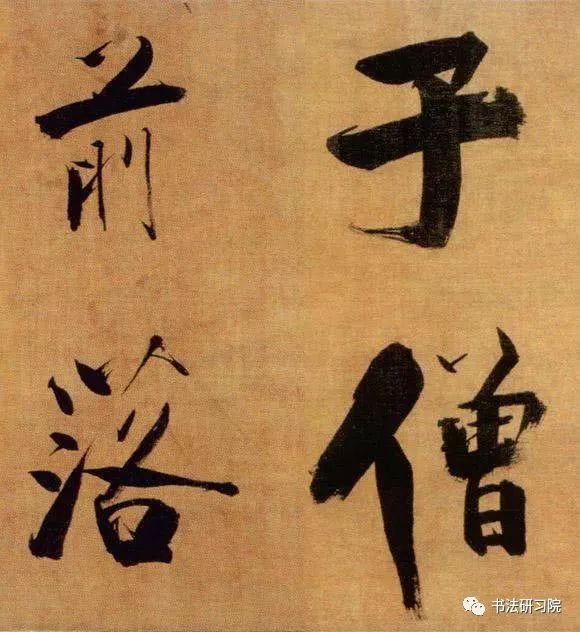 子僧
前落
书法研习院